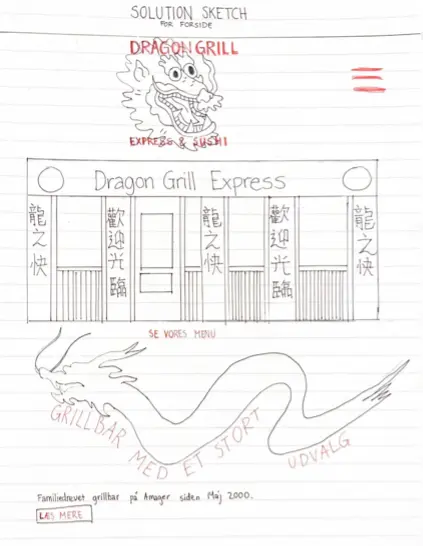 SOLUTION SKETCH
FOR FORSIDE
DRAGON GRILL
EXPRESS & SUSHI
Dragon Grill Express
龍之快
歡迎光臨
龍之快
歡迎光臨
龍之快
SE VORES MENU
GRILLBAR MED ET STORT UDVALG
Familiedrevet grillbar på Amager siden Maj 2000.
LÆS MERE